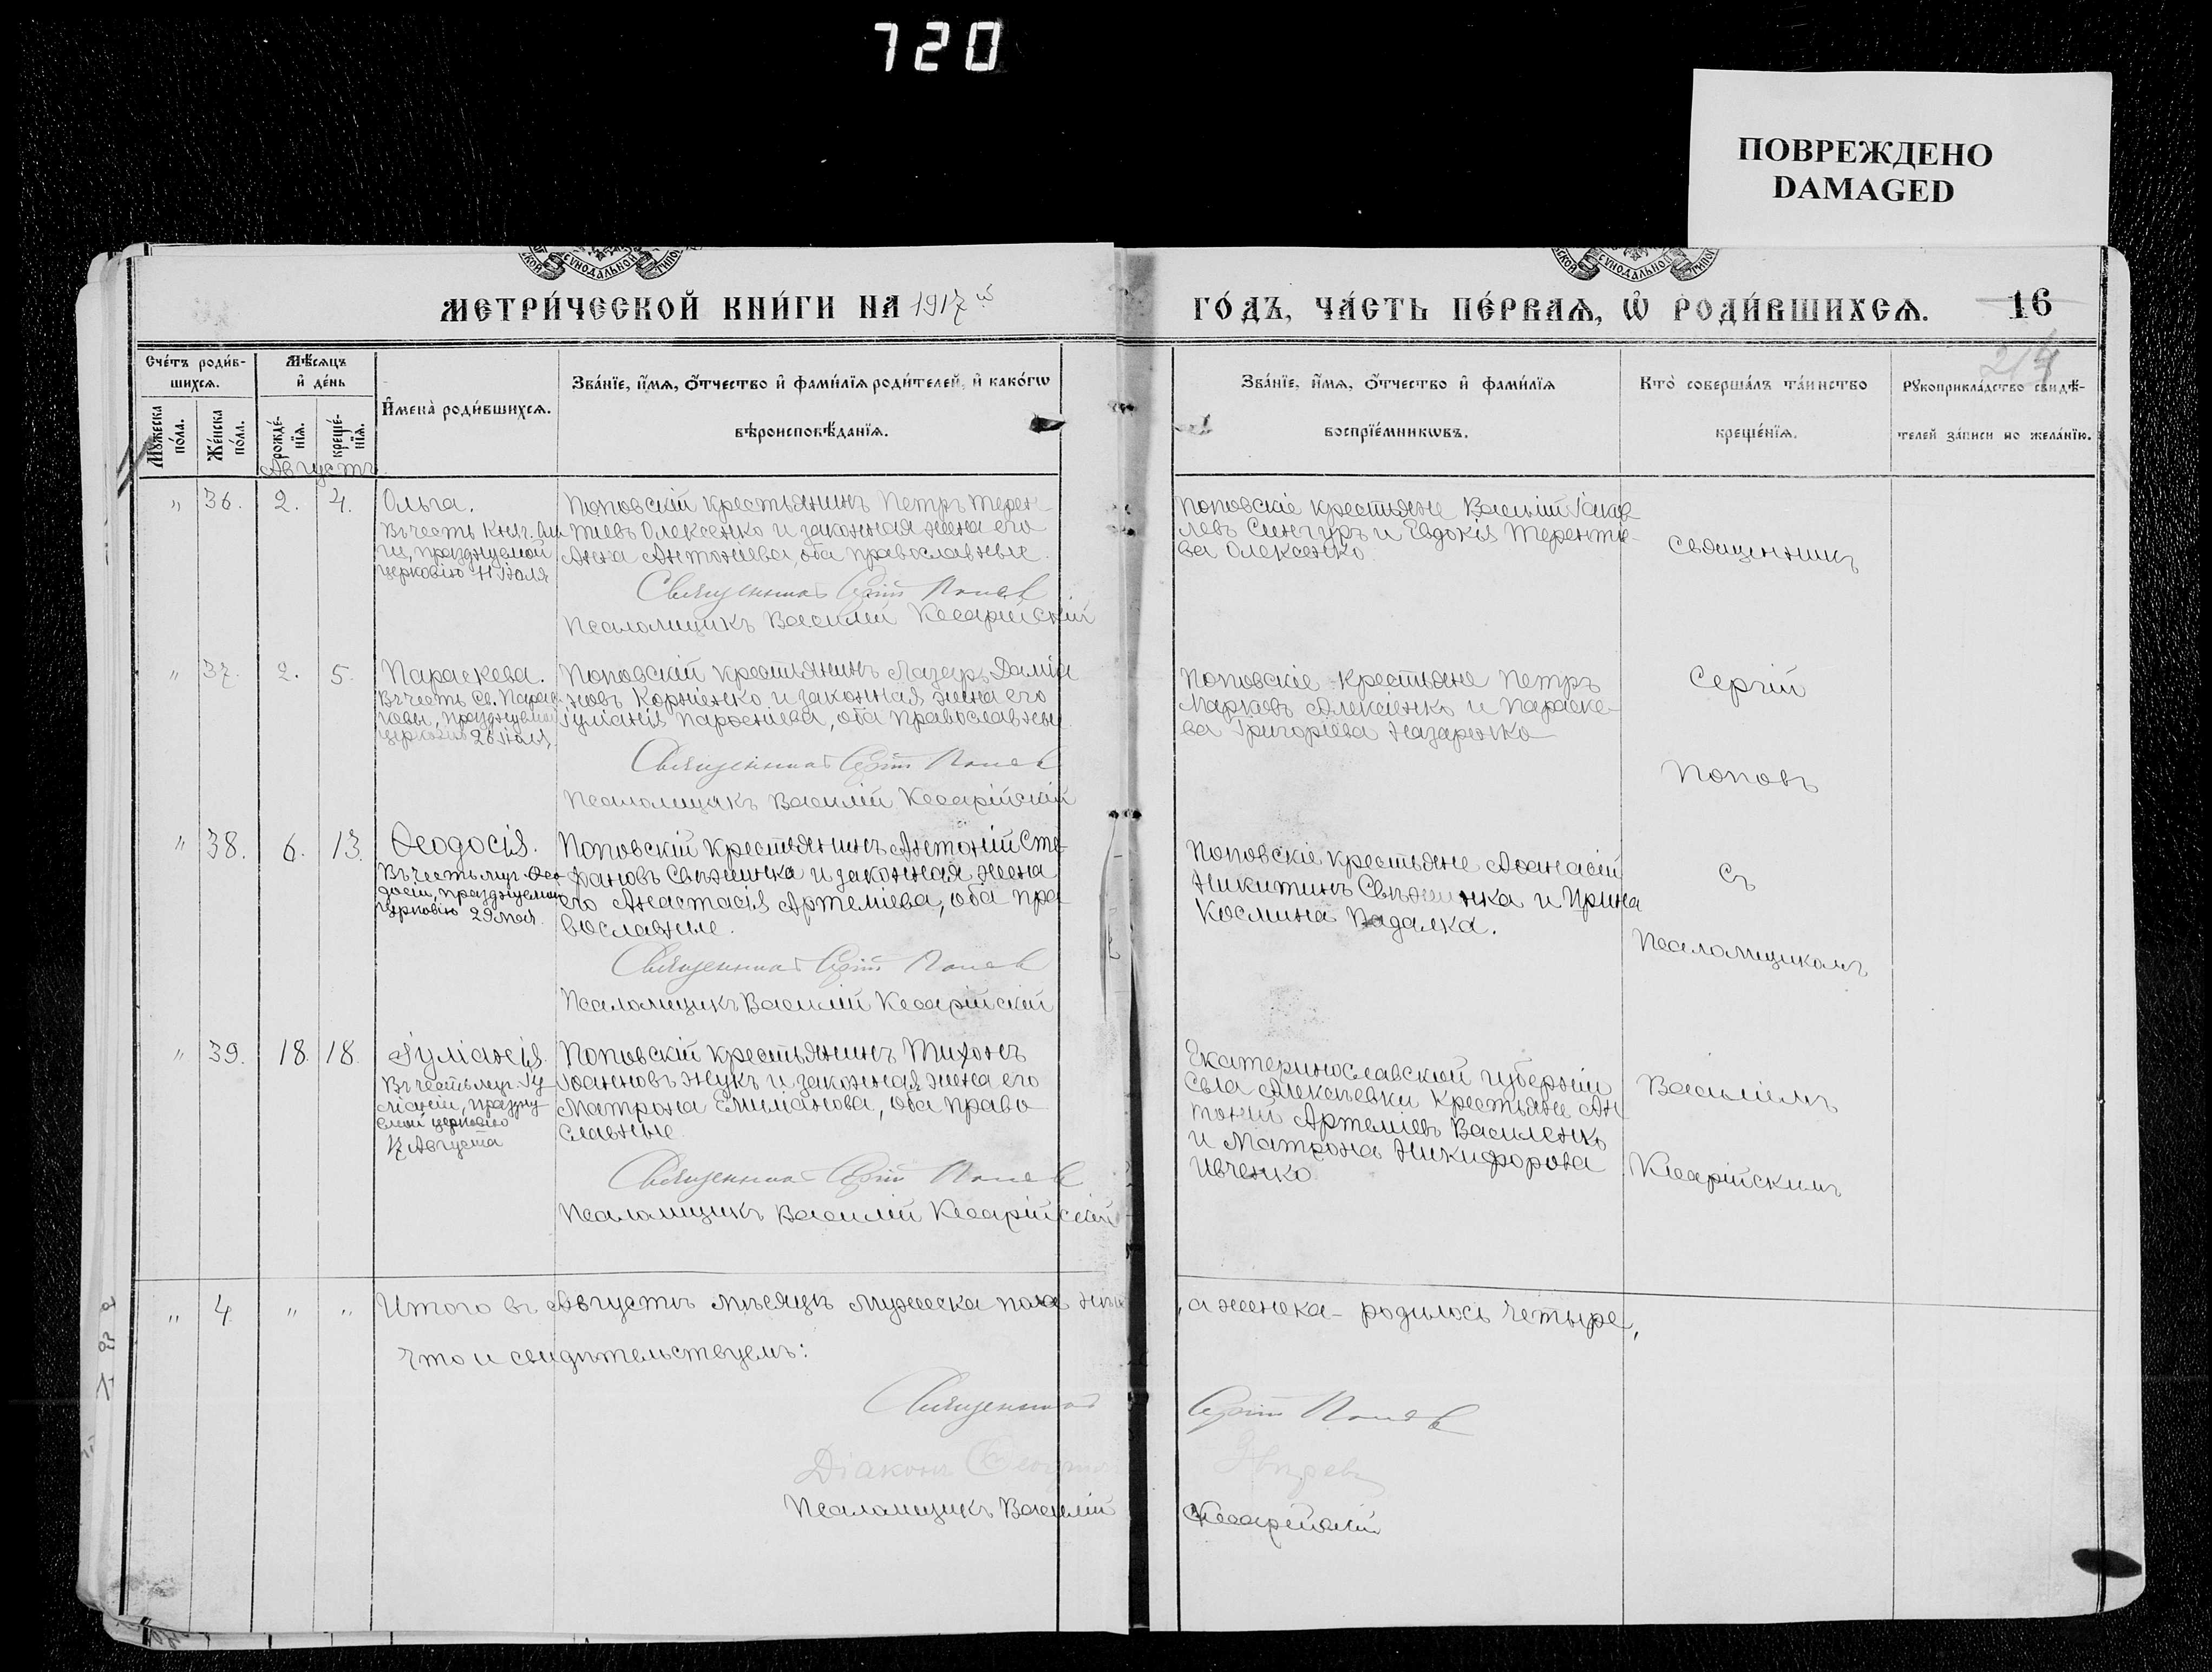 720
ПОВРЕЖДЕНО
DAMAGED
СѴНОДАЛЬНОЙ
СѴНОДАЛЬНОЙ
МЕТРИ́ЧЕСКОЙ КНИ́ГИ НА 1917 й
ГО́ДЪ, ЧА́СТЬ ПЕ́РВАѦ, Ѡ҆ РОДИ́ВШИХСѦ.
16
214
Сче́тъ роди́в-
шихсѧ.
Мѣ́сѧцъ
и҆ де́нь
И҆мена̀ роди́вшихсѧ.
Зва́нїе, и҆́мѧ, ѻ҆́тчество и҆ фами́лїѧ роди́телей, и҆ како́гѡ
вѣроисповѣ́данїѧ.
Мꙋ́жеска
по́ла.
Же́нска
по́ла.
рожде́-
нїѧ.
креще́-
нїѧ.
Зва́нїе, и҆́мѧ, ѻ҆́тчество и҆ фами́лїѧ
воспрїе́мникѡвъ.
Кто̀ соверша́лъ та́инство
креще́нїѧ.
Рꙋкоприкла́дство свидѣ́-
телей за́писи по жела́нїю.
Августъ.
" 36. 2. 4. Ольга.
Въ честь Княг. Оль
ги, празднуемой
церковію 11 Іюля
Поповскій крестьянинъ Петръ Терен-
тіевъ Олексенко и законная жена его
Анна Антоніева, оба православные.
Священникъ Сергій Поповъ
Псаломщикъ Василій Кесарійскій
Поповскіе крестьяне Василій Іаков
левъ Сингуръ и Евдокія Терентіе-
ва Олексенко.
Священникъ
" 37. 2. 5. Параскева.
Въ честь Св. Парас
кевы, празднуемой
церковію 26 Іюля.
Поповскій крестьянинъ Лазарь Даміа
новъ Корніенко и законная жена его
Іуліанія Парфеніева, оба православные
Священникъ Сергій Поповъ
Псаломщикъ Василій Кесарійскій
Поповскіе крестьяне Петръ
Марковъ Алексіенко и Параске-
ва Григоріева Назаренко
Сергій
Поповъ
" 38. 6. 13. Ѳеодосія.
Въ честь муч. Ѳео
досіи, празднуемой
церковію 29 мая.
Поповскій крестьянинъ Антоній Сте-
фановъ Свѣжинка и законная жена
его Анастасія Артеміева, оба пра-
вославные.
Священникъ Сергій Поповъ
Псаломщикъ Василій Кесарійскій
Поповскіе крестьяне Аѳанасій
Никитинъ Свѣжинка и Ирина
Космина Падалка.
Съ
Псаломщикомъ
" 39. 18. 18. Іуліанія.
Въ честь муч. Іу
ліаніи, праздну-
емой церковію
17 Августа
Поповскій крестьянинъ Тихонъ
Іоанновъ Жукъ и законная жена его
Матрона Емиліанова, оба право-
славные
Священникъ Сергій Поповъ
Псаломщикъ Василій Кесарійскій
Екатеринославской губерніи
села Алексѣевки крестьяне Ан
тоній Артеміевъ Василенко
и Матрона Никифорова
Ивченко
Василіемъ
Кесарійскимъ
" 4. " " Итого въ Августѣ мѣсяцѣ мужеска пола
, а женска - родилось четыре,
что и свидѣтельствуемъ:
Священникъ Сергій Поповъ
Діаконъ
Псаломщикъ Василій Кесарійскій